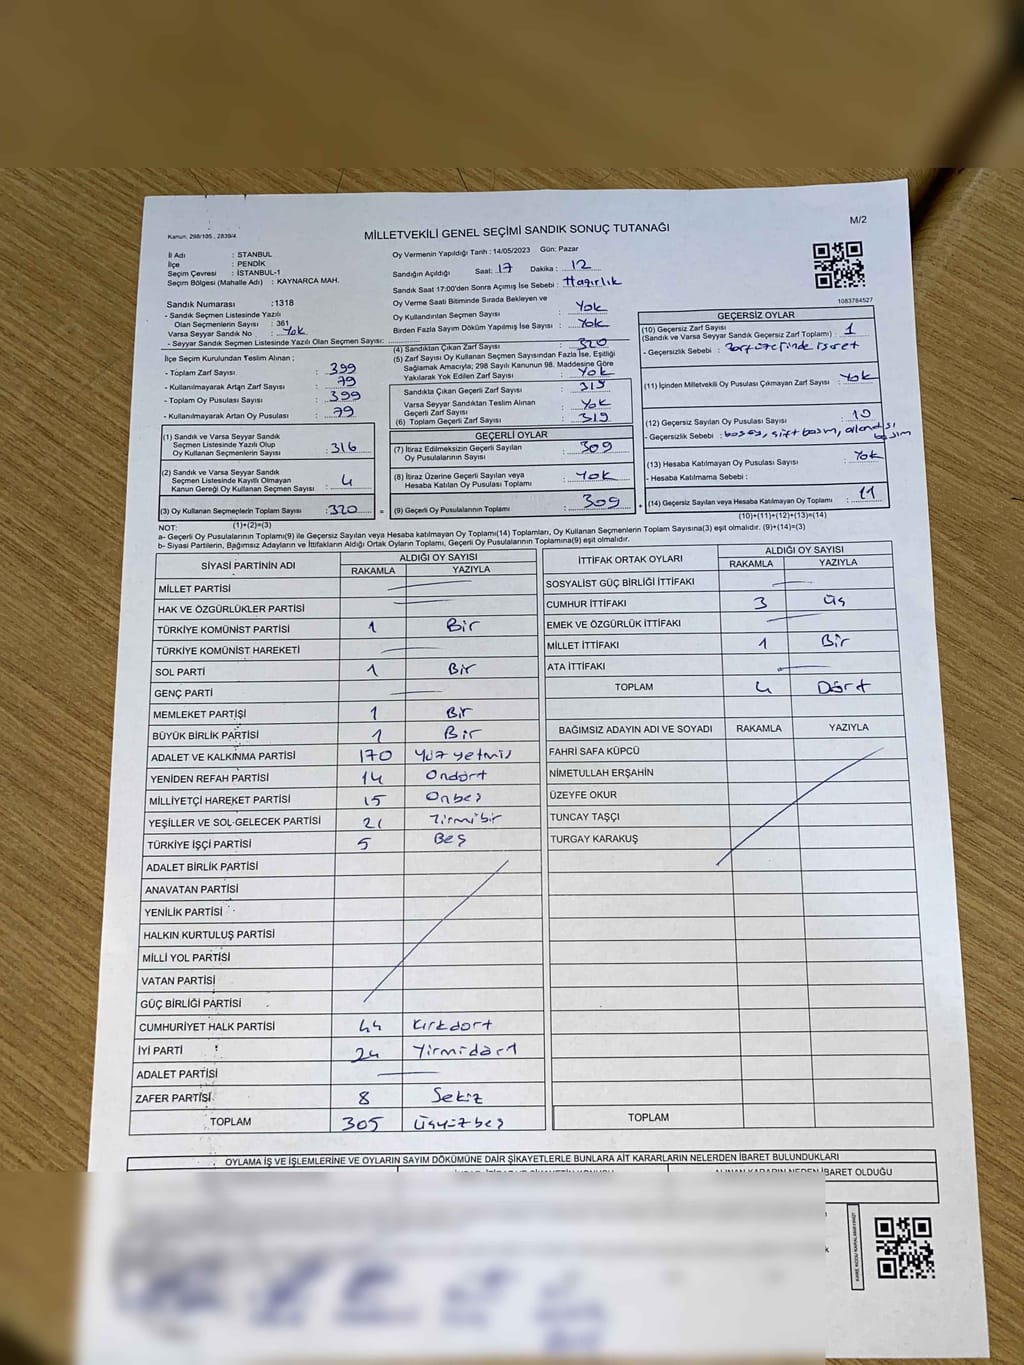 Kanun: 298/105 , 2839/4
M/2
MİLLETVEKİLİ GENEL SEÇİMİ SANDIK SONUÇ TUTANAĞI
İl Adı : STANBUL
İlçe : PENDİK
Seçim Çevresi : İSTANBUL-1
Seçim Bölgesi (Mahalle Adı) : KAYNARCA MAH.
Oy Vermenin Yapıldığı Tarih : 14/05/2023 Gün: Pazar
Sandığın Açıldığı Saat: 17 Dakika : 12
Sandık Saat 17:00'den Sonra Açımış İse Sebebi : Hazırlık
Oy Verme Saati Bitiminde Sırada Bekleyen ve
Oy Kullandırılan Seçmen Sayısı : Yok
Birden Fazla Sayım Döküm Yapılmış İse Sayısı : Yok
1083784527
Sandık Numarası :1318
- Sandık Seçmen Listesinde Yazılı
Olan Seçmenlerin Sayısı : 381
Varsa Seyyar Sandık No : Yok
- Seyyar Sandık Seçmen Listesinde Yazılı Olan Seçmen Sayısı:
İlçe Seçim Kurulundan Teslim Alınan ;
- Toplam Zarf Sayısı : 399
- Kullanılmayarak Artan Zarf Sayısı : 79
- Toplam Oy Pusulası Sayısı : 399
- Kullanılmayarak Artan Oy Pusulası : 79
(1) Sandık ve Varsa Seyyar Sandık
Seçmen Listesinde Yazılı Olup
Oy Kullanan Seçmenlerin Sayısı : 316
(2) Sandık ve Varsa Seyyar Sandık
Seçmen Listesinde Kayıtlı Olmayan
Kanun Gereği Oy Kullanan Seçmen Sayısı : 4
(3) Oy Kullanan Seçmenlerin Toplam Sayısı :320 =
(4) Sandıktan Çıkan Zarf Sayısı : 320
(5) Zarf Sayısı Oy Kullanan Seçmen Sayısından Fazla İse, Eşitliği
Sağlamak Amacıyla; 298 Sayılı Kanunun 98. Maddesine Göre
Yakılarak Yok Edilen Zarf Sayısı : Yok
Sandıkta Çıkan Geçerli Zarf Sayısı : 319
Varsa Seyyar Sandıktan Teslim Alınan
Geçerli Zarf Sayısı : Yok
(6) Toplam Geçerli Zarf Sayısı : 319
GEÇERLİ OYLAR
(7) İtiraz Edilmeksizin Geçerli Sayılan
Oy Pusulalarının Sayısı : 309
(8) İtiraz Üzerine Geçerli Sayılan veya
Hesaba Katılan Oy Pusulası Toplamı : Yok
(9) Geçerli Oy Pusulalarının Toplamı : 309 +
GEÇERSİZ OYLAR
(10) Geçersiz Zarf Sayısı
(Sandık ve Varsa Seyyar Sandık Geçersiz Zarf Toplamı) : 1
- Geçersizlik Sebebi : Zarf üzerinde isaret
(11) İçinden Milletvekili Oy Pusulası Çıkmayan Zarf Sayısı : Yok
(12) Geçersiz Sayılan Oy Pusulası Sayısı : 10
- Geçersizlik Sebebi : çift basım,
basım
(13) Hesaba Katılmayan Oy Pusulası Sayısı : Yok
- Hesaba Katılmama Sebebi :
(14) Geçersiz Sayılan veya Hesaba Katılmayan Oy Toplamı : 11
(10)+(11)+(12)+(13)=(14)
NOT: (1)+(2)=(3)
a- Geçerli Oy Pusulalarının Toplamı(9) ile Geçersiz Sayılan veya Hesaba katılmayan Oy Toplamı(14) Toplamları, Oy Kullanan Seçmenlerin Toplam Sayısına(3) eşit olmalıdır. (9)+(14)=(3)
b- Siyasi Partilerin, Bağımsız Adayların ve İttifakların Aldığı Ortak Oyların Toplamı, Geçerli Oy Pusulalarının Toplamına(9) eşit olmalıdır.
SİYASİ PARTİNİN ADI ALDIĞI OY SAYISI
RAKAMLA YAZIYLA
MİLLET PARTİSİ
HAK VE ÖZGÜRLÜKLER PARTİSİ
TÜRKİYE KOMÜNİST PARTİSİ 1 Bir
TÜRKİYE KOMÜNİST HAREKETİ
SOL PARTİ 1 Bir
GENÇ PARTİ
MEMLEKET PARTİSİ 1 Bir
BÜYÜK BİRLİK PARTİSİ 1 Bir
ADALET VE KALKINMA PARTİSİ 170 Yüz yetmis
YENİDEN REFAH PARTİSİ 14 Ondört
MİLLİYETÇİ HAREKET PARTİSİ 15 Onbeş
YEŞİLLER VE SOL GELECEK PARTİSİ 21 Yirmibir
TÜRKİYE İŞÇİ PARTİSİ 5 Beş
ADALET BİRLİK PARTİSİ
ANAVATAN PARTİSİ
YENİLİK PARTİSİ
HALKIN KURTULUŞ PARTİSİ
MİLLİ YOL PARTİSİ
VATAN PARTİSİ
GÜÇ BİRLİĞİ PARTİSİ
CUMHURİYET HALK PARTİSİ 44 Kırkdört
İYİ PARTİ 24 Yirmidört
ADALET PARTİSİ
ZAFER PARTİSİ 8 Sekiz
TOPLAM 305 üçyüzbeş
İTTİFAK ORTAK OYLARI ALDIĞI OY SAYISI
RAKAMLA YAZIYLA
SOSYALİST GÜÇ BİRLİĞİ İTTİFAKI
CUMHUR İTTİFAKI 3 üç
EMEK VE ÖZGÜRLÜK İTTİFAKI
MİLLET İTTİFAKI 1 Bir
ATA İTTİFAKI
TOPLAM 4 Dört
BAĞIMSIZ ADAYIN ADI VE SOYADI RAKAMLA YAZIYLA
FAHRİ SAFA KÜPCÜ
NİMETULLAH ERŞAHİN
ÜZEYFE OKUR
TUNCAY TAŞÇI
TURGAY KARAKUŞ
TOPLAM
OYLAMA İŞ VE İŞLEMLERİNE VE OYLARIN SAYIM DÖKÜMÜNE DAİR ŞİKAYETLERLE BUNLARA AİT KARARLARIN NELERDEN İBARET BULUNDUKLARI
ALINAN KARARIN NEDEN İBARET OLDUĞU